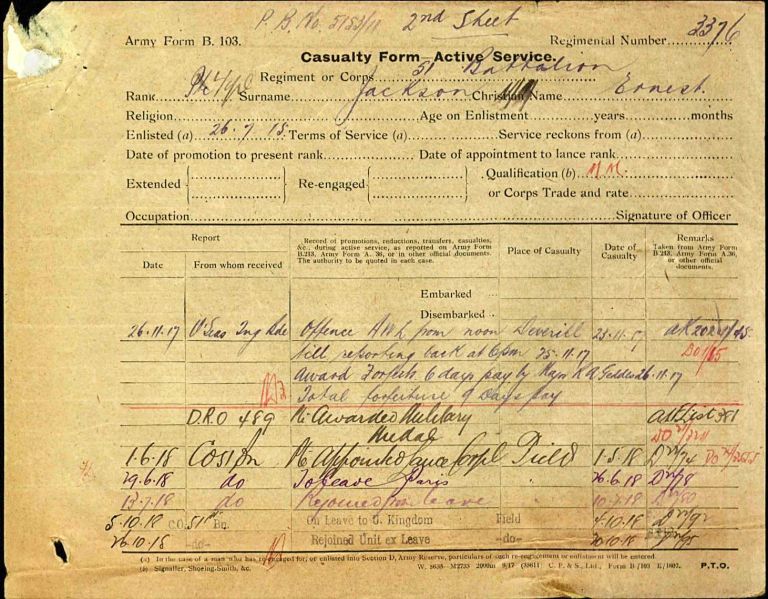 P.B. No. 5153/11 2nd Sheet
Army Form B. 103.
Regimental Number 3376
Casualty Form—Active Service.
Regiment or Corps 51 Battalion
Rank Pte Surname Jackson Christian Name Ernest.
Religion Age on Enlistment years months
Enlisted (a) 26.7.15. Terms of Service (a) Service reckons from (a)
Date of promotion to present rank Date of appointment to lance rank
Extended Re-engaged Qualification (b) M.M.
or Corps Trade and rate
Occupation Signature of Officer
Report
Date
From whom received
Record of promotions, reductions, transfers, casualties, &c., during active service, as reported on Army Form B.213, Army Form A. 36, or in other official documents. The authority to be quoted in each case.
Place of Casualty
Date of Casualty
Remarks
Taken from Army Form B.213, Army Form A.36, or other official documents.
Embarked
Disembarked
26.11.17 O'Seas Tng Bde Offence AWL from noon Deverill 23.11.17
till reporting back at 6pm 25.11.17
Award Forfeits 6 days pay by Major K A Geddes 26.11.17
Total forfeiture 9 Days pay
D.R.O 489 Awarded Military
Medal
1.6.18 CO 51 Bn Appointed Lance Corpl Field 1.5.18
29.6.18 do To Leave Paris " 26.6.18
13.7.18 do Rejoined from leave " 10.7.18
5.10.18 C.O. 51st Bn. On Leave to U. Kingdom Field 4.10.18
26.10.18 -do- Rejoined Unit ex Leave -do-
(a) In the case of a man who has re-engaged for, or enlisted into Section D, Army Reserve, particulars of such re-engagement or enlistment will be entered.
(b) Signaller, Shoeing-Smith, &c.
P.T.O.